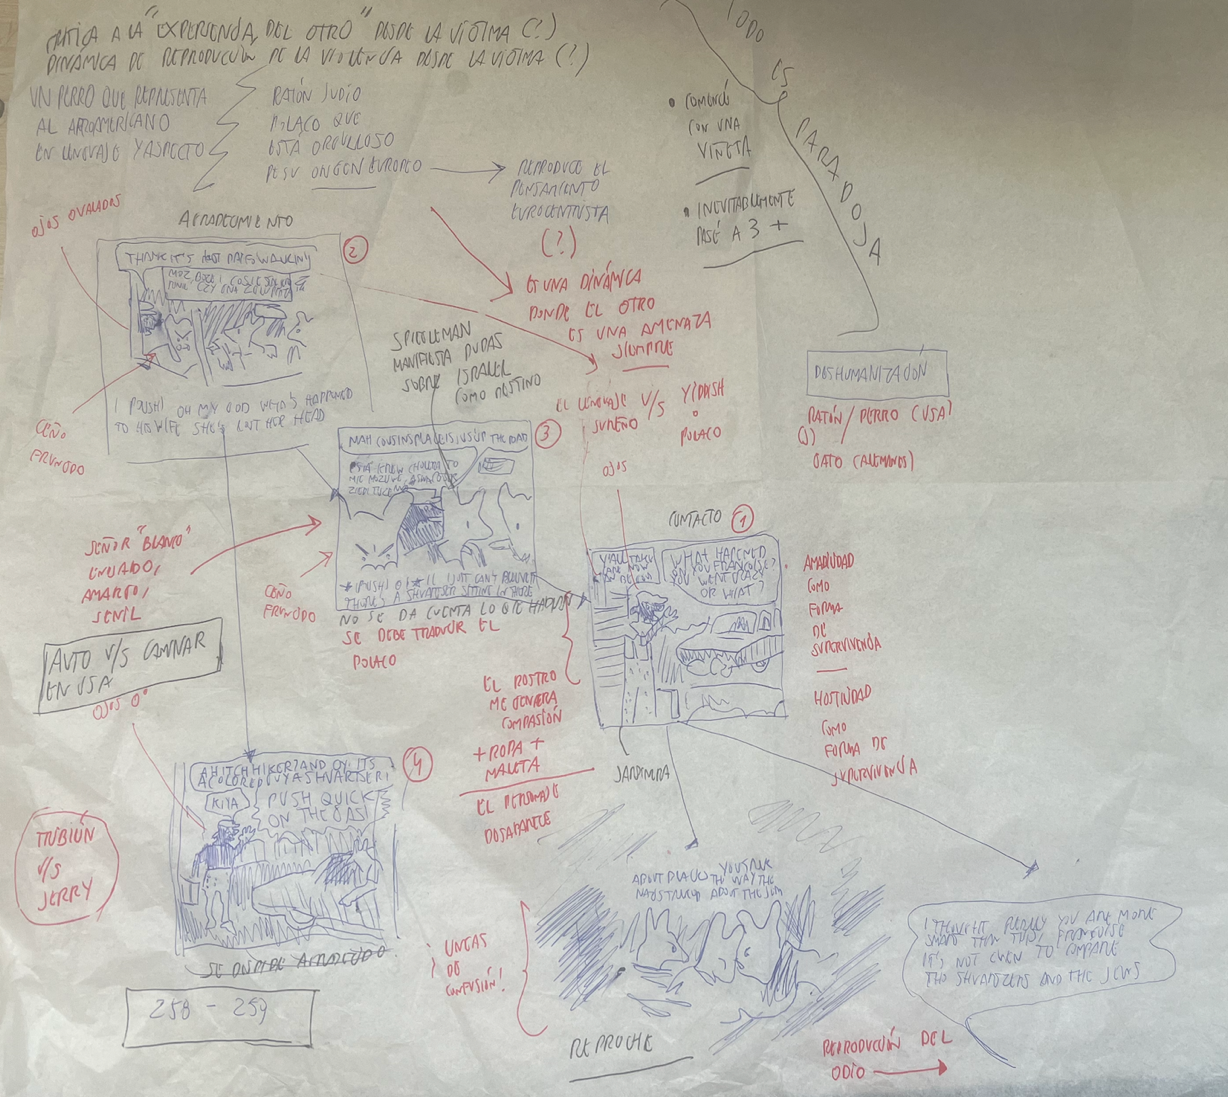 CRÍTICA A LA "EXPERIENCIA DEL OTRO" DESDE LA VÍCTIMA (?)
DINÁMICA DE REPRODUCCIÓN DE LA VIOLENCIA DESDE LA VÍCTIMA (?)
UN PERRO QUE REPRESENTA
AL AFROAMERICANO
EN LENGUAJE Y ASPECTO
RATÓN JUDÍO
POLACO QUE
ESTÁ ORGULLOSO
DE SU ORIGEN EUROPEO
REPRODUCE EL
PENSAMIENTO
EUROCENTRISTA
(?)
ES UNA DINÁMICA
DONDE EL OTRO
ES UNA AMENAZA
SIEMPRE
• COMENCÉ
CON UNA
VIÑETA
• INEVITABLEMENTE
PASÉ A 3 +
TODO
ES
PARADOJA
DESHUMANIZACIÓN
RATÓN / PERRO (USA)
(J)
GATO (ALEMANES)
OJOS OVALADOS
AGRADECIMIENTO
2
CEÑO
FRUNCIDO
! POLISH! OH MY GOD WHAT'S HAPPENED
TO HIS WIFE SHE'S LOST HER HEAD
SPIEGELMAN
MANIFIESTA DUDAS
SOBRE ISRAEL
COMO DESTINO
EL LENGUAJE V/S YIDDISH
SUREÑO O
POLACO
OJOS
3
NAH COUSINS PLACE IS JUS UP THE ROAD
* POLISH! I JUST CAN'T BELIEVE IT
THERE'S A SHVARTSER SITTING IN HERE
CEÑO
FRUNCIDO
NO SE DA CUENTA LO QE HABLAN
SE DEBE TRADUCIR EL
POLACO
SEÑOR "BLANCO"
ENOJADO,
AMARGO,
SENIL
AUTO V/S CAMINAR
EN USA
OJOS O°
CONTACTO
1
WHAT HAPPENED
ON YOU FRANCOISE?
YOU WENT CRAZY
OR WHAT?
JARDINERA
AMABILIDAD
COMO
FORMA
DE
SUPERVIVENCIA
HOSTILIDAD
COMO
FORMA DE
SUPERVIVENCIA
EL ROSTRO
ME GENERA
COMPASIÓN
+ ROPA +
MALETA
EL PERSONAJE
DESAPARECE
4
A HITCH HIKER! AND OY, ITS
A COLORED GUY A SHVARTSER!
PUSH QUICK
ON THE GAS!
SE DESPIDE AGRADECIDO
258 - 259
V/S
JERRY
¡ LINEAS
DE
CONFUSIÓN!
YOU TALK
ABOUT BLACKS THE WAY THE
NAZIS TALKED ABOUT THE JEWS
REPROCHE
REPRODUCCIÓN DEL
ODIO
I THOUGHT REALLY YOU ARE MORE
SMART THAN THIS, FRANCOISE
IT'S NOT EVEN TO COMPARE
THE SHVARTSERS AND THE JEWS